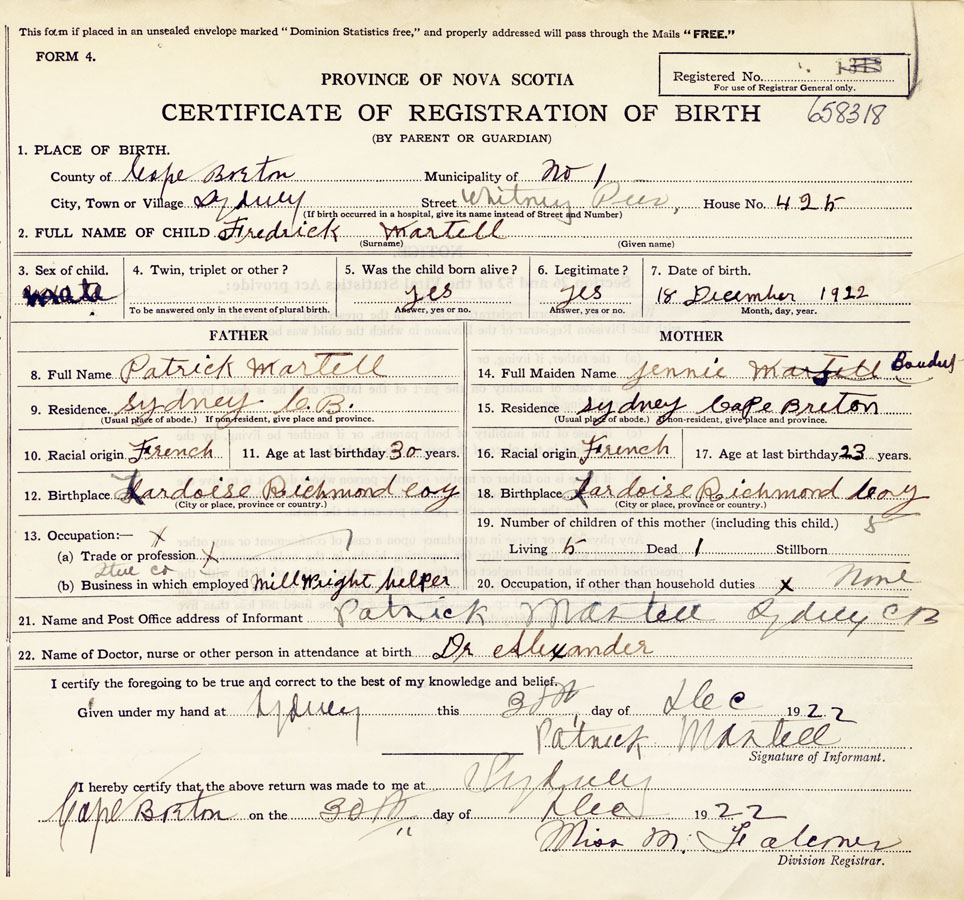 This form if placed in an unsealed envelope marked “Dominion Statistics free,” and properly addressed will pass through the Mails “FREE.”
FORM 4.
PROVINCE OF NOVA SCOTIA
Registered No.
For use of Registrar General only.
CERTIFICATE OF REGISTRATION OF BIRTH 658318
(BY PARENT OR GUARDIAN)
1. PLACE OF BIRTH.
County of Cape Breton Municipality of No 1
City, Town or Village Sydney Street Whitney Pier, House No. 425
(If birth occurred in a hospital, give its name instead of Street and Number)
2. FULL NAME OF CHILD Fredrick Martell
(Surname) (Given name)
3. Sex of child. 4. Twin, triplet or other? 5. Was the child born alive? 6. Legitimate? 7. Date of birth.
yes yes 18 December 1922
To be answered only in the event of plural birth. Answer, yes or no. Answer, yes or no. Month, day, year.
FATHER MOTHER
8. Full Name Patrick Martell 14. Full Maiden Name Jennie Martell
9. Residence. Sydney C.B. 15. Residence Sydney Cape Breton
(Usual place of abode.) If non-resident, give place and province. (Usual place of abode.) If non-resident, give place and province.
10. Racial origin French 11. Age at last birthday 30 years. 16. Racial origin French 17. Age at last birthday 23 years.
12. Birthplace Lardoise Richmond coy 18. Birthplace Lardoise Richmond Coy
(City or place, province or country.) (City or place, province or country.)
13. Occupation:— x 19. Number of children of this mother (including this child.)
(a) Trade or profession x Living 5 Dead 1 Stillborn
(b) Business in which employed Millwright helper 20. Occupation, if other than household duties x None
21. Name and Post Office address of Informant Patrick Martell Sydney CB
22. Name of Doctor, nurse or other person in attendance at birth Dr Alexander
I certify the foregoing to be true and correct to the best of my knowledge and belief.
Given under my hand at Sydney this 30th day of Dec 1922
Patrick Martell
Signature of Informant.
I hereby certify that the above return was made to me at Sydney
Cape Breton on the 30th day of Dec 1922
Miss M. Falconer
Division Registrar.